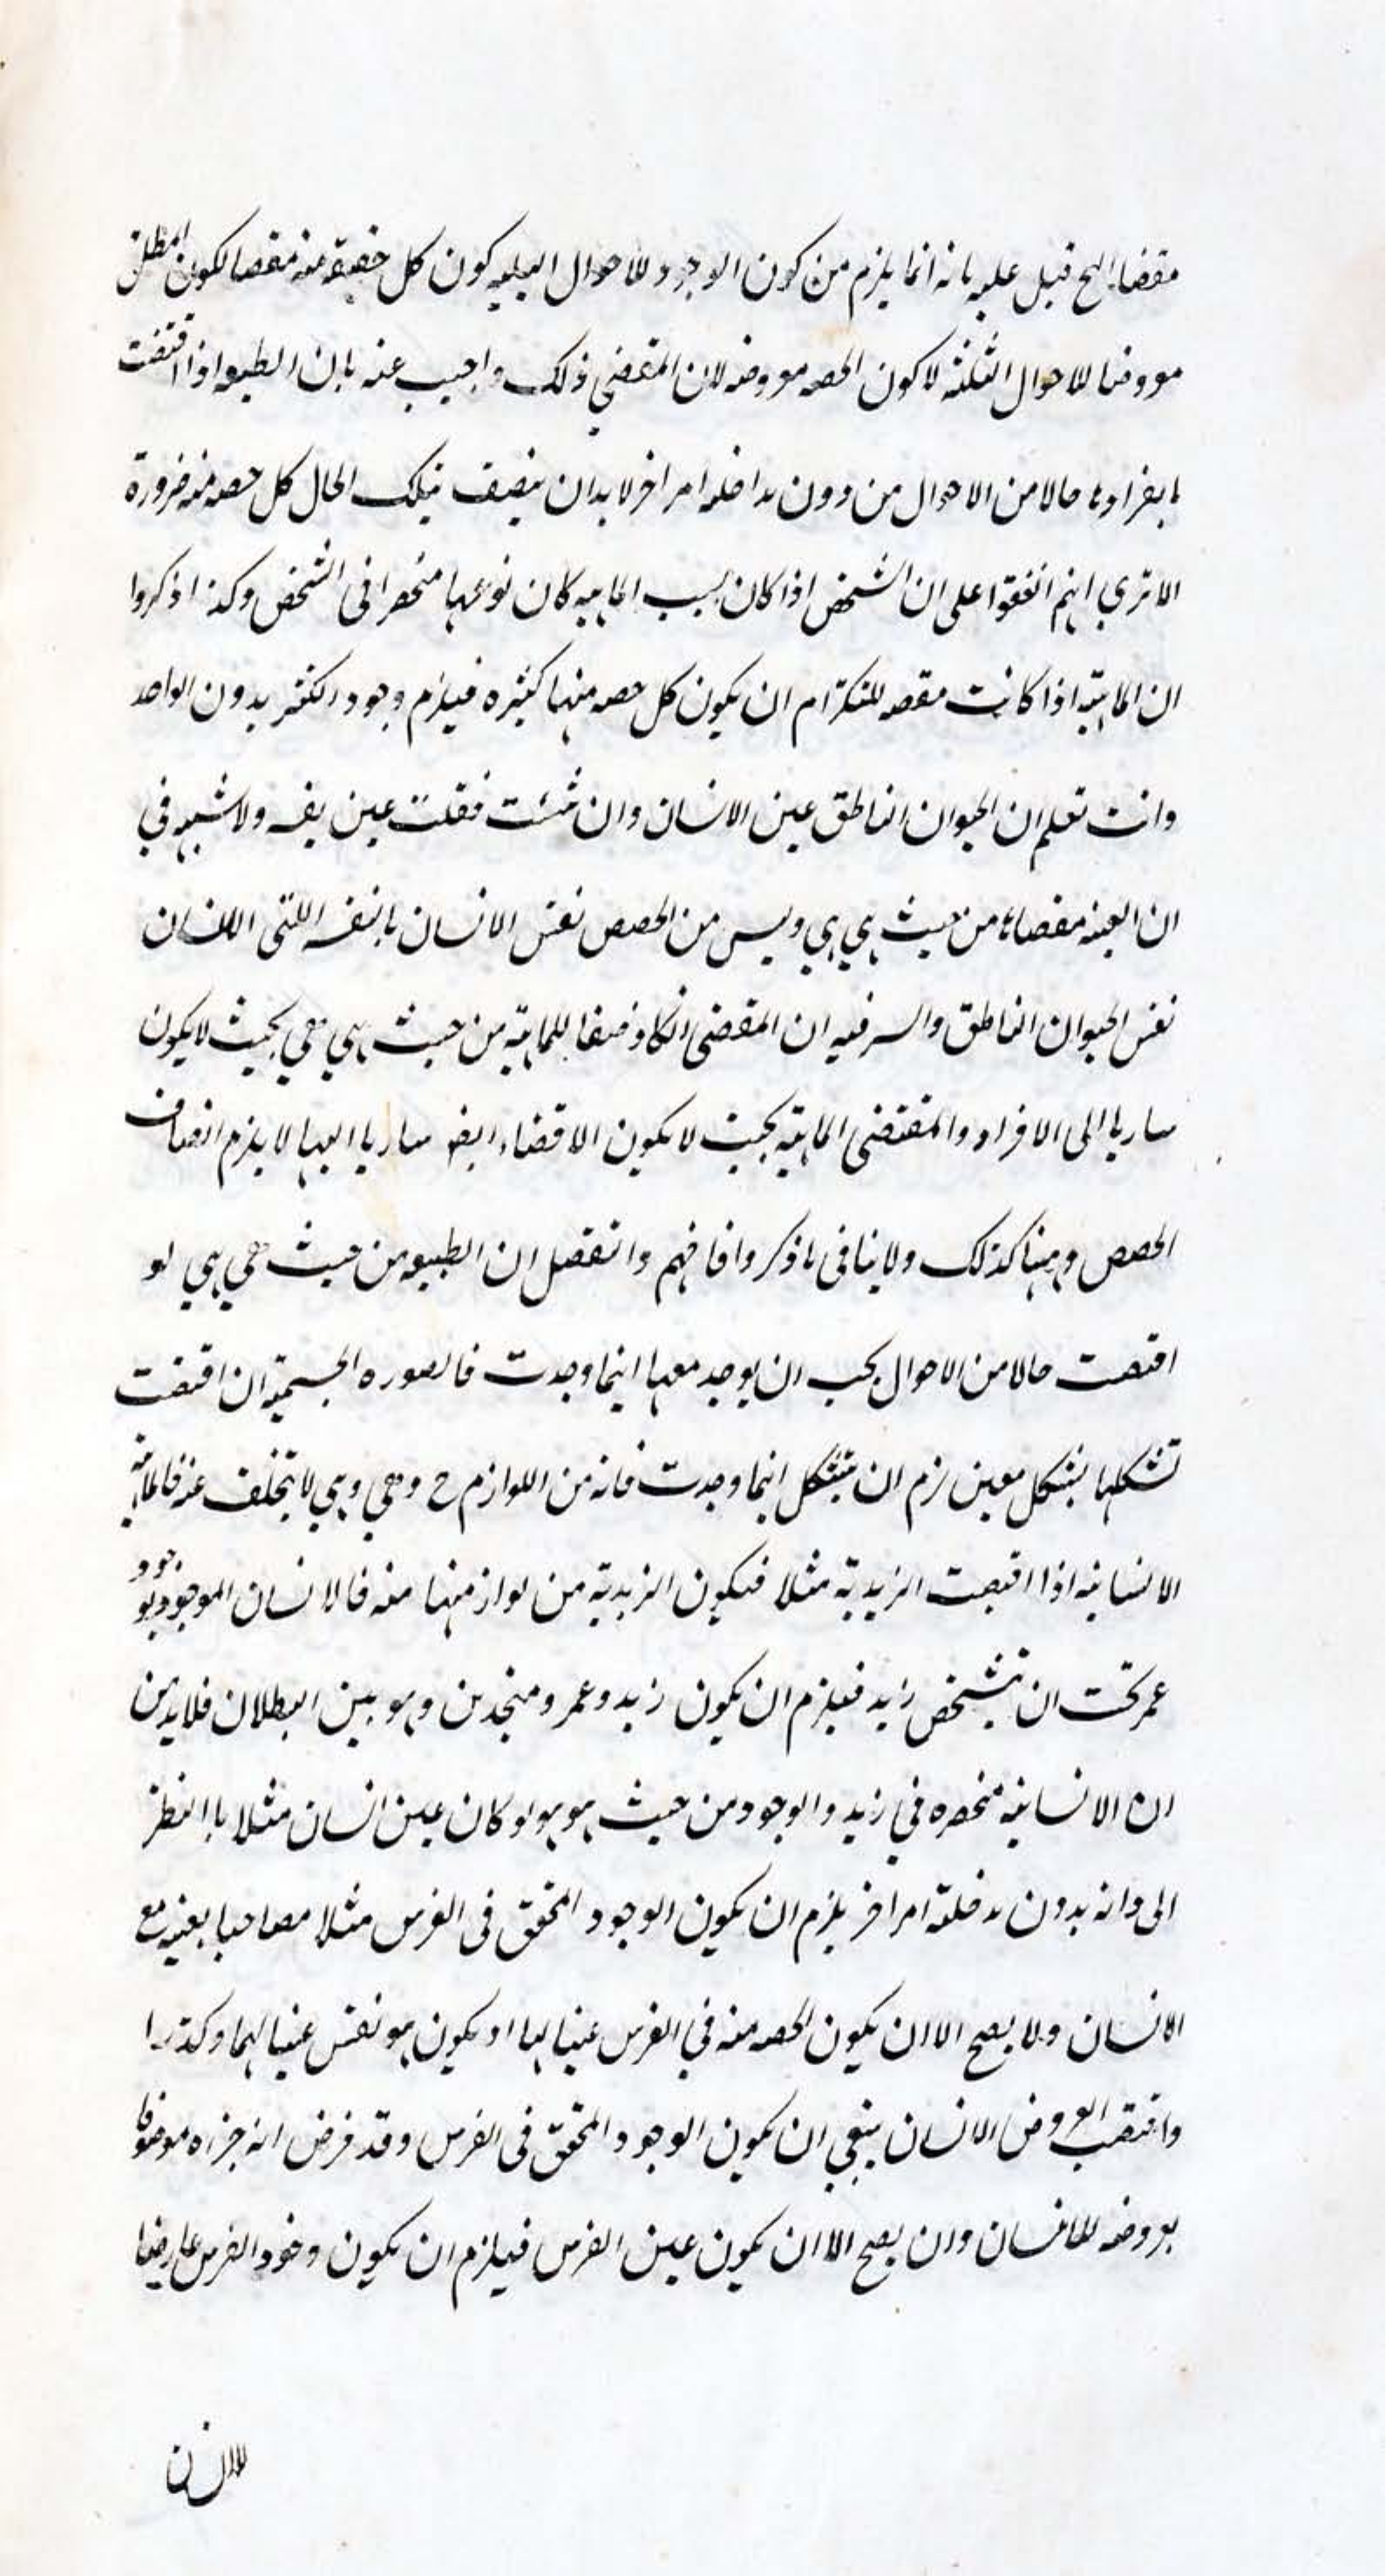 مقضا الخ قيل عليه بانه انما يلزم من كون الوجود للاحوال كون كل حصة منه مقضا لكون المطلق
معروضا للاحوال الثلثه لا كون الحصه معروضه لان المقضي ذلك واجيب عنه بان الطبيعه اذا اقتضت
بانفرادها حالا من الاحوال من دون مداخله امر اخر لا بد ان يتصف بتلك الحال كل حصه منه ضرورة
الا تري انهم اتفقوا على ان الشخص اذا كان بسبب الماهيه كان نوعها منحصرا في الشخص وكذا ذكروا
ان الماهيّه اذا كانت مقضه للتكثر ام ان يكون كل حصه منها كثيره فيلزم وجود الكثير بدون الواحد
وانت تعلم ان الحيوان الناطق عين الانسان وان شئت فقلت عين ولا شبهه في
ان العينه مقضاها من حيث هي هي وليس من الحصص نفس الانسان بالنفسه اللتى الانسان
نفس الحيوان الناطق والسر فيه ان المقضى ان كان وصفا للماهيّه من حيث هي هي بحيث لا يكون
ساريا الى الافراد والمقتضى الماهيّه بحيث لا يكون الاقضاء ايضا ساريا اليها لا يلزم اتصاف
الحصص وههنا كذلك ولا ينافى ما ذكروا فافهم والتفصيل ان الطبيعه من حيث هي هي لو
اقتضت حالا من الاحوال يجب ان يوجد معها اينما وجدت فالصوره الجسميّه ان اقتضت
تشكلها بشكل معين لزم ان يتشكل اينما وجدت فانه من اللوازم ح وهي وهي لا تتخلف عنه فالماهيّه
الانسانيه اذا اقتضت الزيديّه مثلا فيكون الزيديّه من لوازمها منه فالانسان الموجود بوجود
عمر تحت ان يتشخص زيد فيلزم ان يكون زيد وعمرو متحدين وهو بين البطلان فلا بد من
ان الانسانيّه منحصره في زيد والوجود من حيث هو هو لو كان عين انسان مثلا بالنظر
الى ذاته بدون مدخليّة امر اخر يلزم ان يكون الوجود المتحقق فى الفرس مثلا مصاحبا بعينه مع
الانسان ولا يصح الا ان يكون الحصه منه في الفرس عينا لها او يكون هو نفس عينا لهما وكذا
واقتضت العروض الانسان ينبغي ان يكون الوجود المتحقق فى الفرس وقد فرض انه جزاه موصوفا
بعروضه للانسان وان يصح الا ان يكون عين الفرس فيلزم ان يكون وجود الفرس عارضا
للانسان